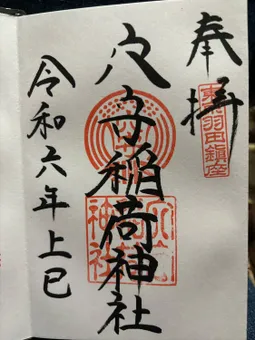 奉拝
東羽田鎮座
穴守稲荷神社
令和六年上巳